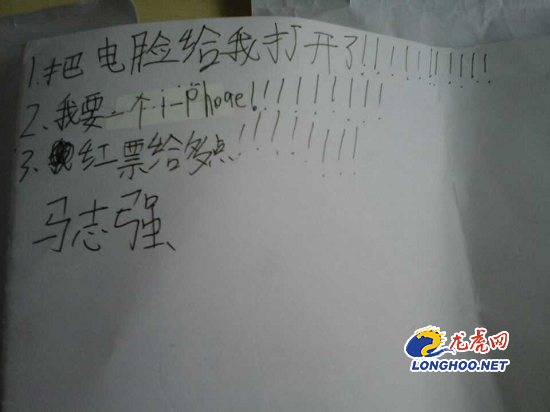 1.把电脸给我打开了!!!!!!!!!!!
2、我要一个i-Phoae!!!!!!!!!
3、红票给多点!!!!!!!!
马志强
龙虎网
LONGHOO.NET